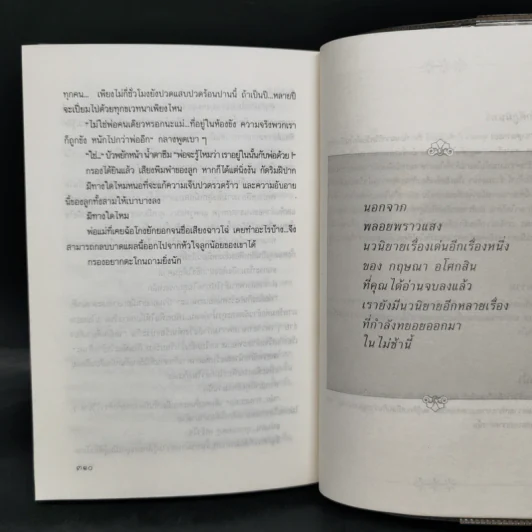 ทุกคน... เพียงไม่กี่ชั่วโมงยังปวดแสบปวดร้อนปานนี้ ถ้าเป็นปี...หลายปี
จะเปี่ยมไปด้วยทุกขเวทนาเพียงไหน
"ไม่ใช่พ่อคนเดียวหรอกนะแม่...ที่อยู่ในห้องขัง ความจริงพวกเรา
ก็ถูกขัง หนักไปกว่าพ่ออีก" กลางพูดเบา ๆ
"ใช่..." บัวพยักหน้า น้ำตาซึม "พ่อจะรู้ไหมว่า เราอยู่ในนั้นกับพ่อด้วย !"
กรองได้ยินแล้ว เสียงพิมพ์ของลูก หากก็ได้แต่นิ่งงัน กัดริมฝีปาก
มีทางใดไหมหนอที่จะแก้ความเจ็บปวดรวดร้าว และความอับอาย
นี้ของลูกทั้งสามให้เบาบางลง
มีทางใดไหม
พ่อแม่ที่เคยฉ้อโกงยักยอกจนชื่อเสียงฉาวโฉ่ เคยทำอะไรบ้าง...จึง
สามารถกลบบาดแผลนี้ออกไปจากหัวใจลูกน้อยของเขาได้
กรองอยากตะโกนถามยิ่งนัก
๓๑๐
นอกจาก
พลอยพราวแสง
นวนิยายเรื่องเด่นอีกเรื่องหนึ่ง
ของ กฤษณา อโศกสิน
ที่คุณได้อ่านจบลงแล้ว
เรายังมีนวนิยายอีกหลายเรื่อง
ที่กำลังทยอยออกมา
ในไม่ช้านี้